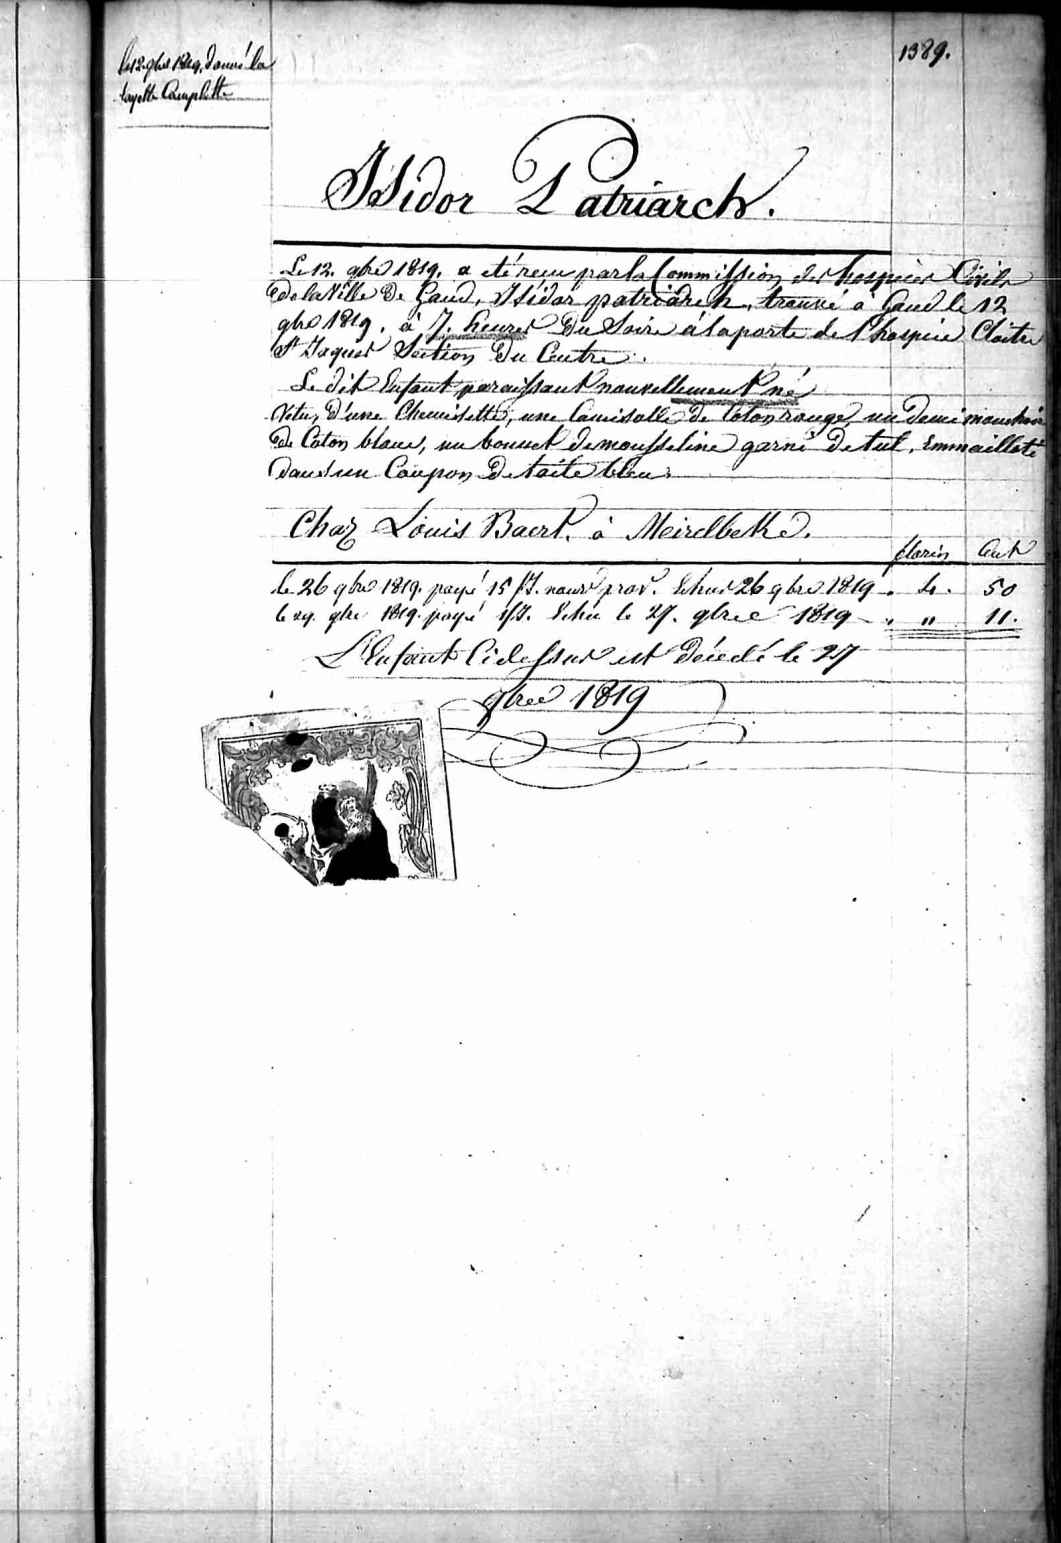 le 12. 9bre 1819. donné la
layette Complette
1389.
Isidor Patriarch.
Le 12. 9bre 1819. a été reçu par la Commission des hospices Civils
de la Ville de Gand, Isidor patriarch, trouvé à Gand le 12
9bre 1819. à 7. heures du Soire à la porte de l'hospice Cloitre
St Jaques Section du Centre.
Le dit Enfant paraissant nouvellement né
Vetu, d'une Chemisette, une Camisolle de Coton rouge, un demi mouchoir
de Coton blanc, un bonnet de mousseline garni de tul, Emmailloté
dans un Coupon de toile bleu.
Chez Louis Baert. à Meirelbeke.
florin Cent
le 26 9bre 1819. payé 15 fJ. nourr prov. Echus 26 9bre 1819 . 4. 50
le 29. 9bre 1819. payé 1/J. Echu le 27. 9bree 1819 . " 11.
L'Enfant Cidessus est décedé le 27
9bree 1819